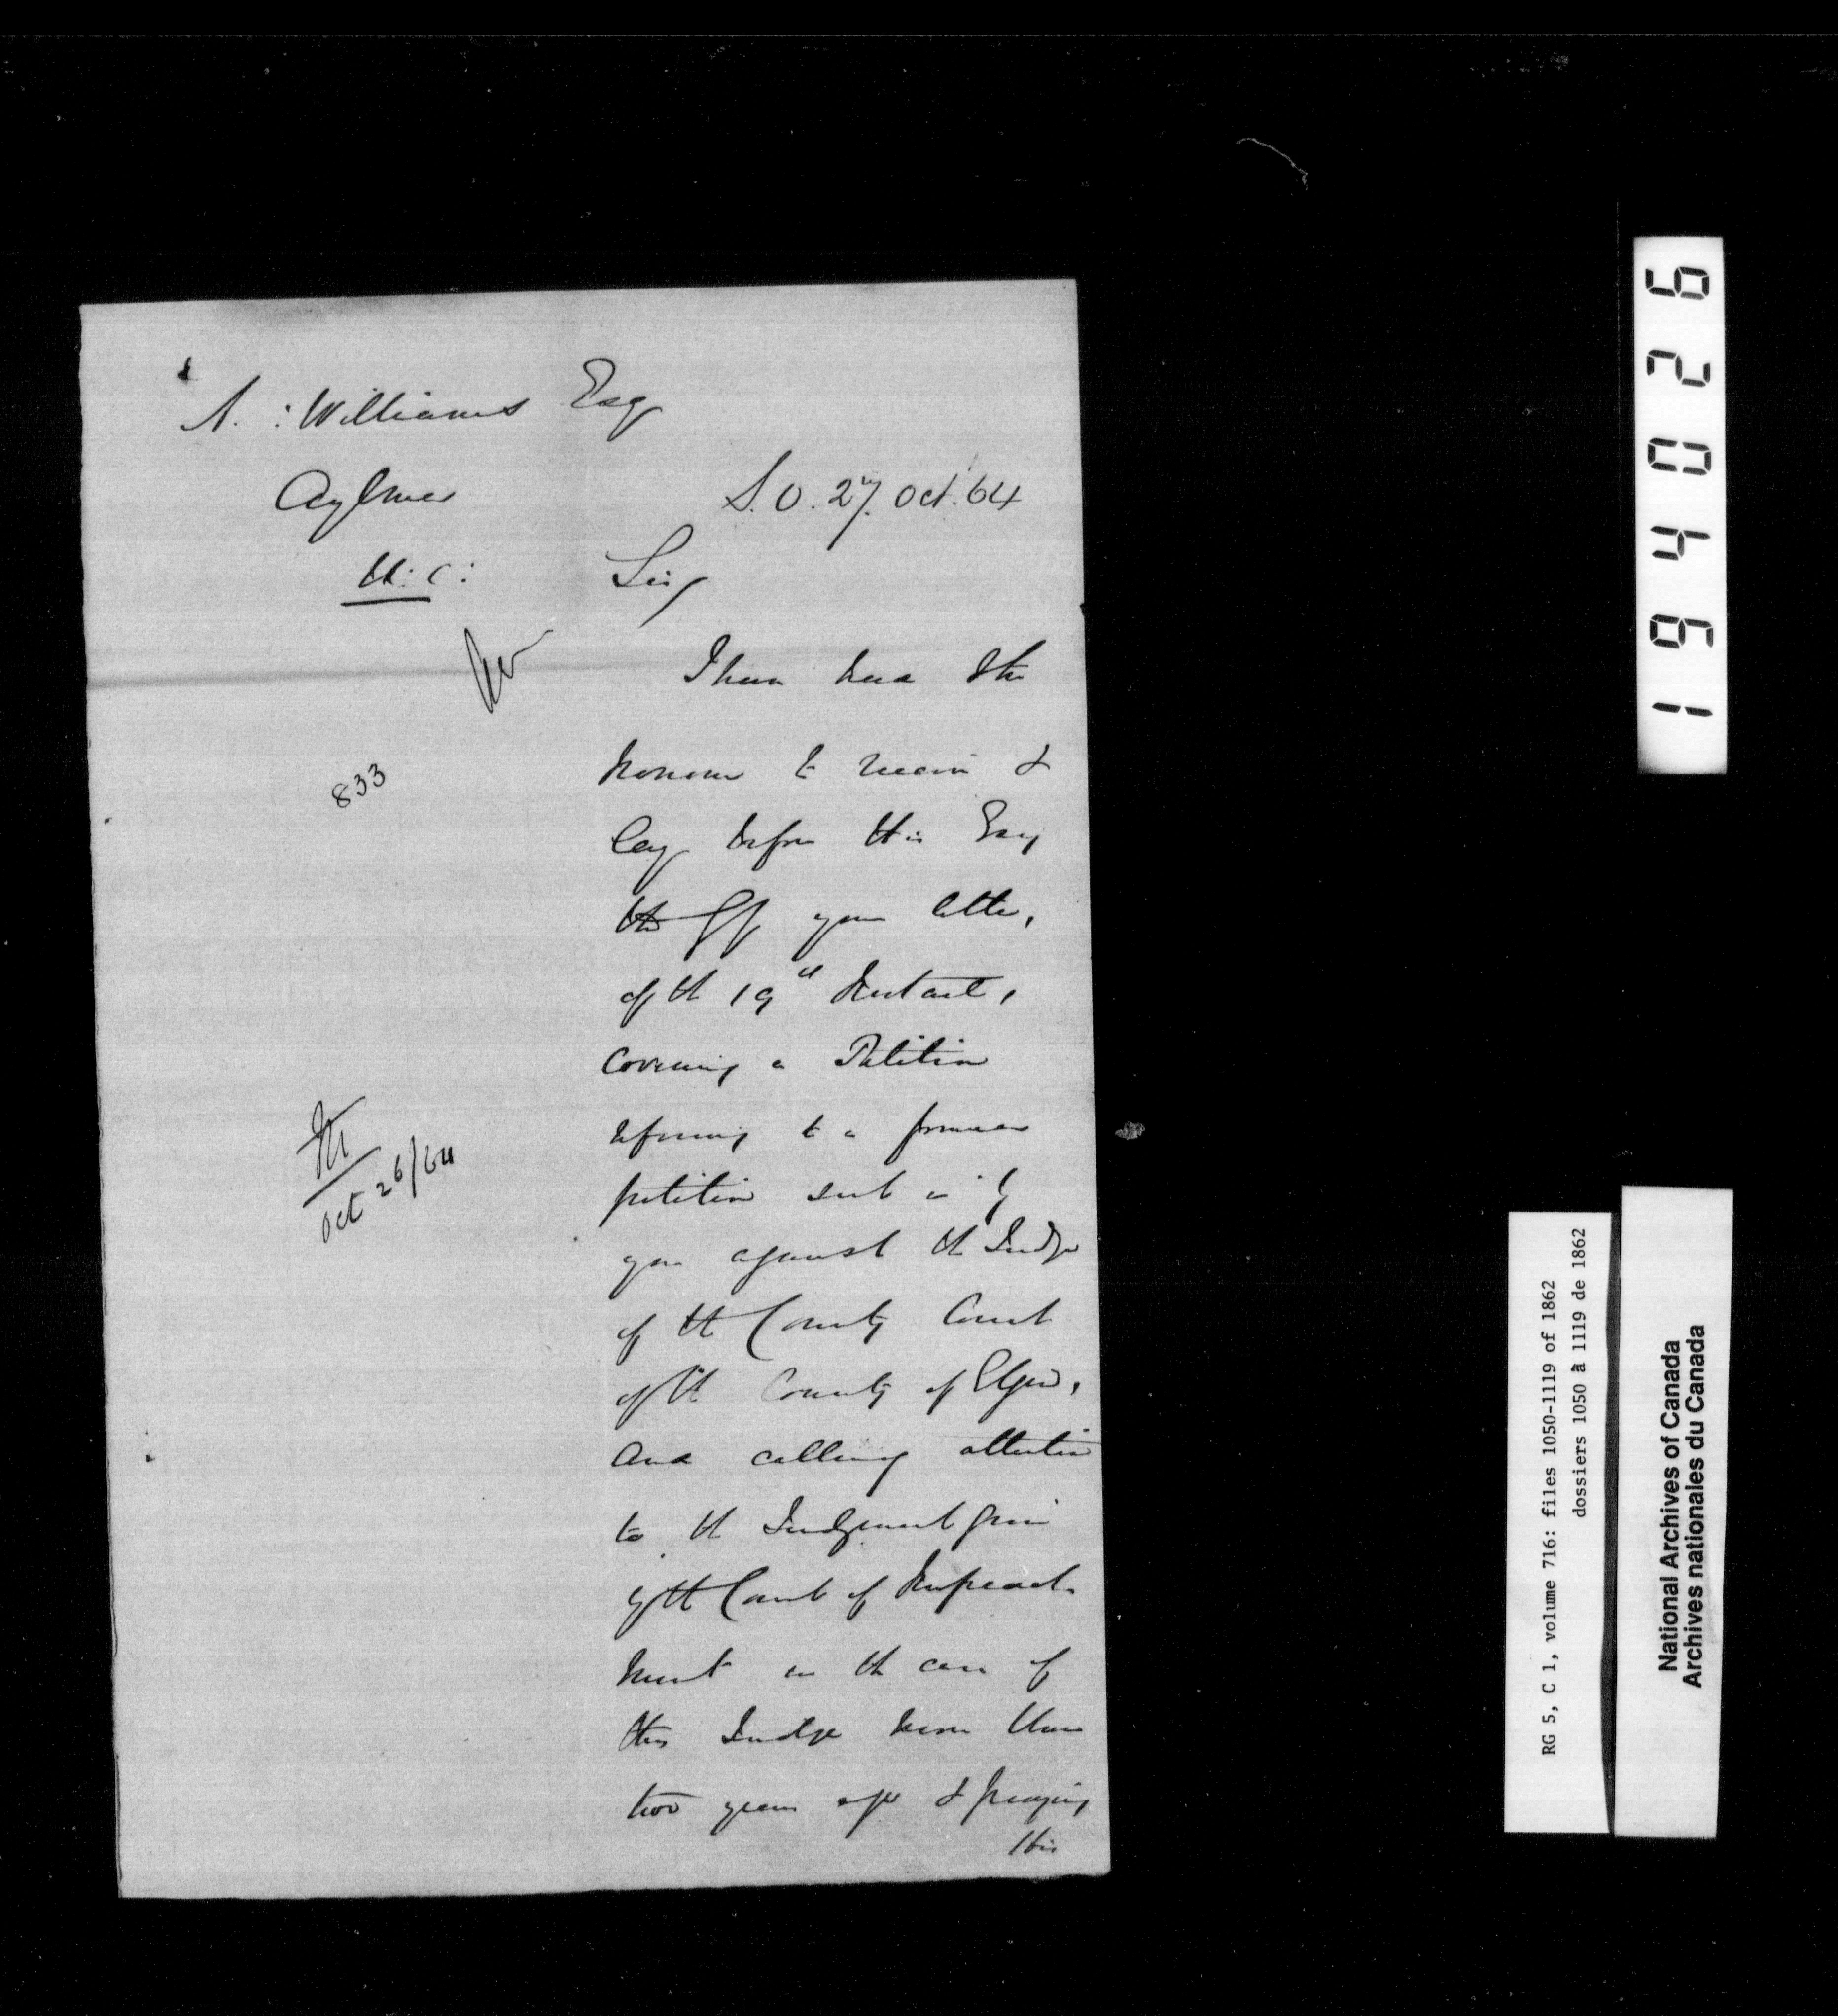 A. : Williams Esq
Aylmer
U: C:
S. O. 27. Oct. 64
Sir,
I have had the
honour to receive &
lay before His Excy
the GG your letter,
of the 19th Instant,
covering a Petition
833
referring to a former
petition sent in by
Oct 26/64
you against the Judge
of the County Court
of the County of Elgin,
and calling attention
to the Judgement given
by the Court of Impeach-
ment in the case of
this Judge more than
two years ago & praying
His
194026
RG 5, C 1, volume 716: files 1050-1119 of 1862
dossiers 1050 à 1119 de 1862
National Archives of Canada
Archives nationales du Canada